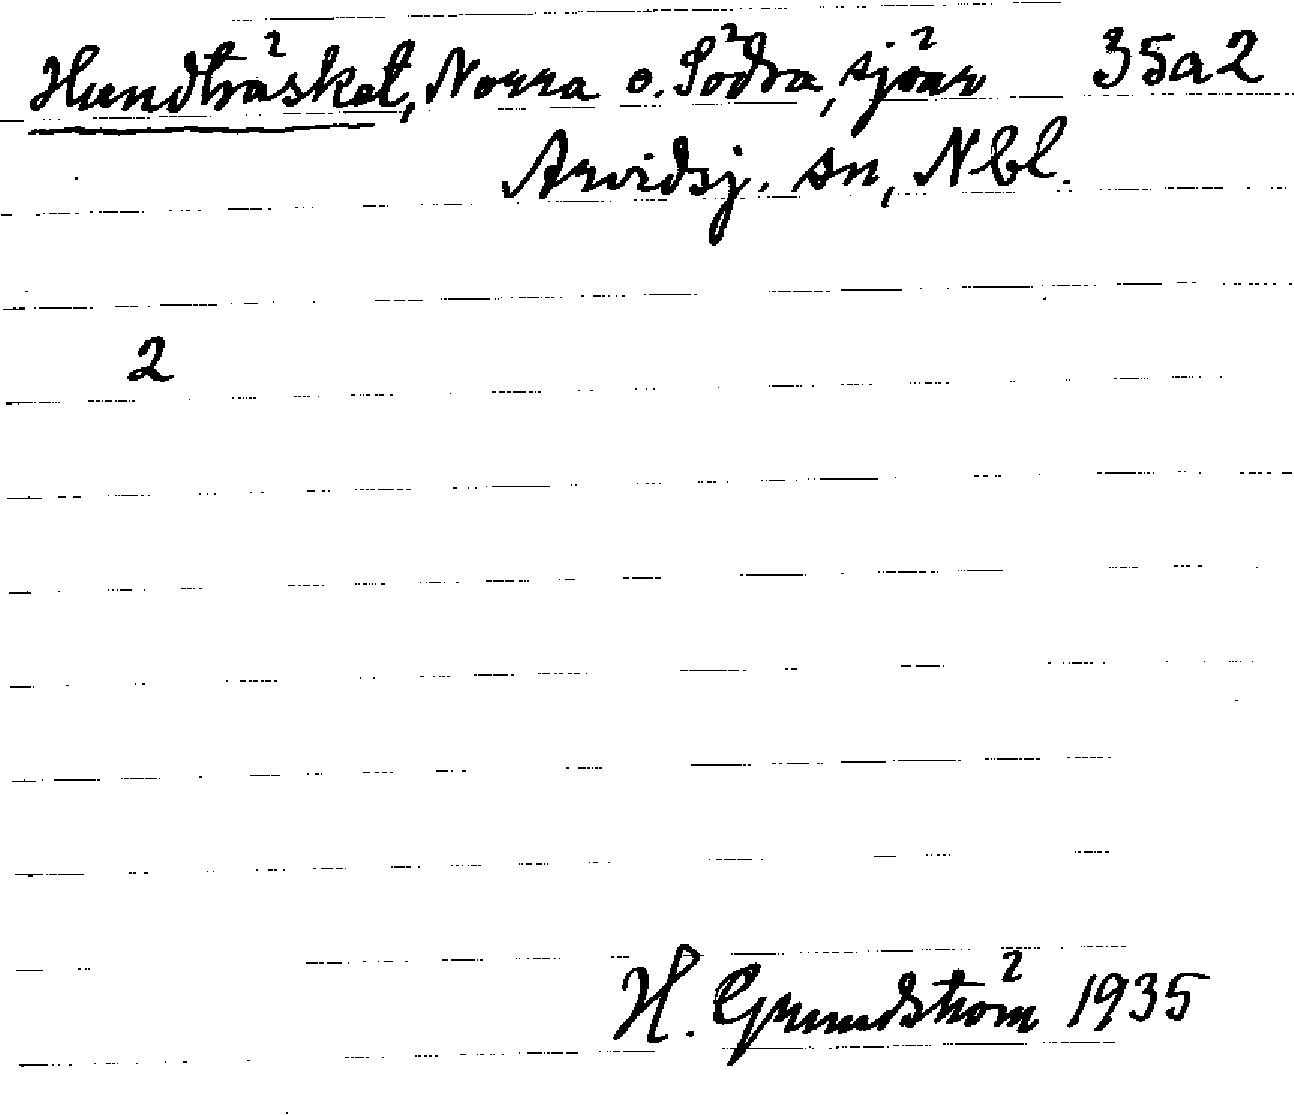 Hundträsket, Norra o. Södra, sjöar 35a2
Arvidsj. sn, Nbl.
2
H. Grundström 1935